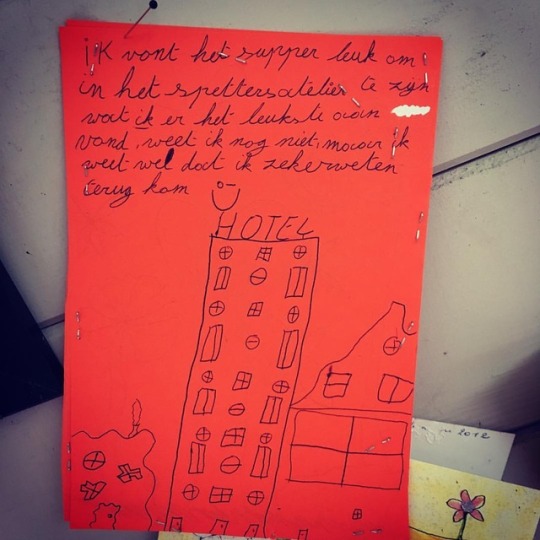 ik vont het supper leuk om
in het spettersatelier te zijn
wat ik er het leukste aan
vand, weet ik nog niet, maar ik
weet wel dat ik zekerweten
terug kom
HOTEL
love